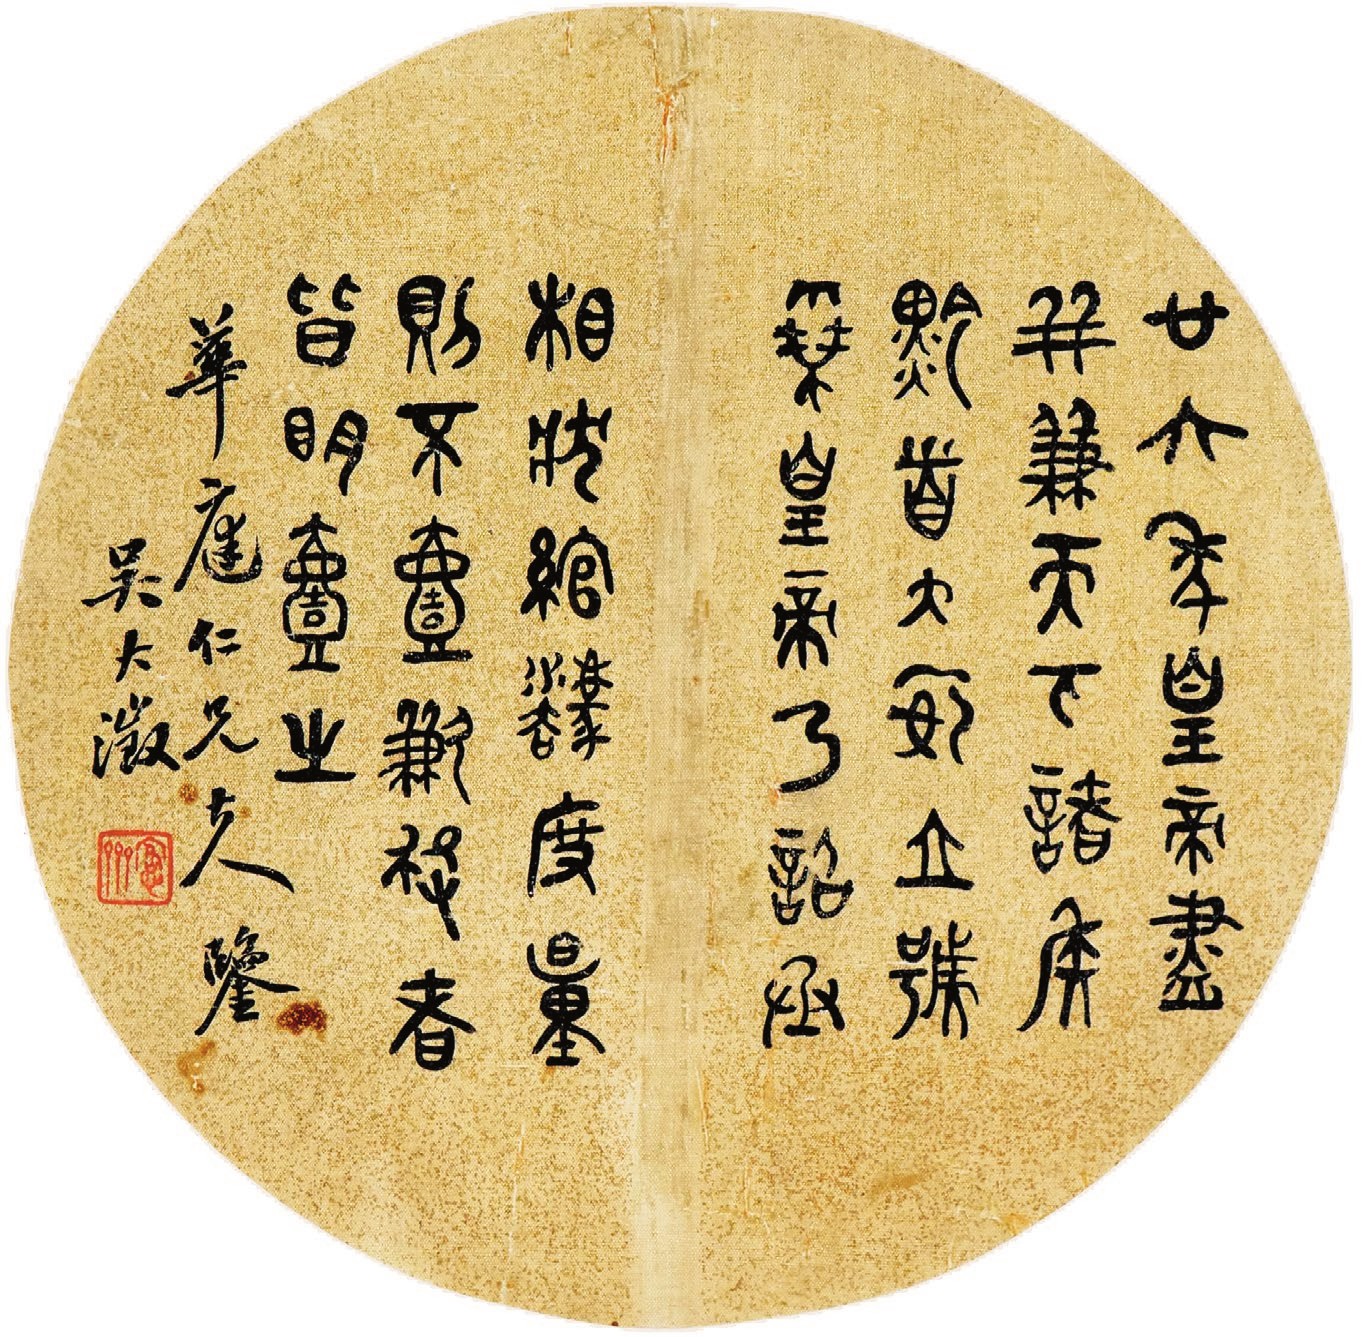 廿六年皇帝盡
并兼天下諸侯
黔首大安立號
為皇帝乃詔丞
相狀綰灋度量
則不壹歉疑者
皆明壹之
華庭仁兄大人鑒
吳大澂
愙齋